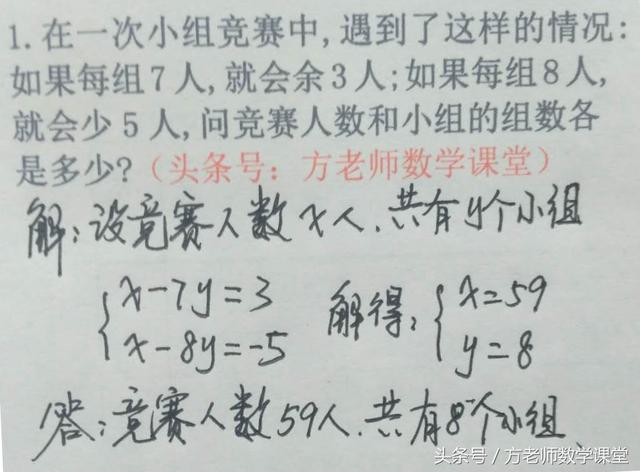 1.在一次小组竞赛中,遇到了这样的情况:
如果每组7人,就会余3人;如果每组8人,
就会少5人,问竞赛人数和小组的组数各
是多少?(头条号:方老师数学课堂)
解:设竞赛人数x人.共有y个小组
x-7y=3 解得: x=59
x-8y=-5 y=8
答:竞赛人数59人.共有8个小组.
头条号/方老师数学课堂